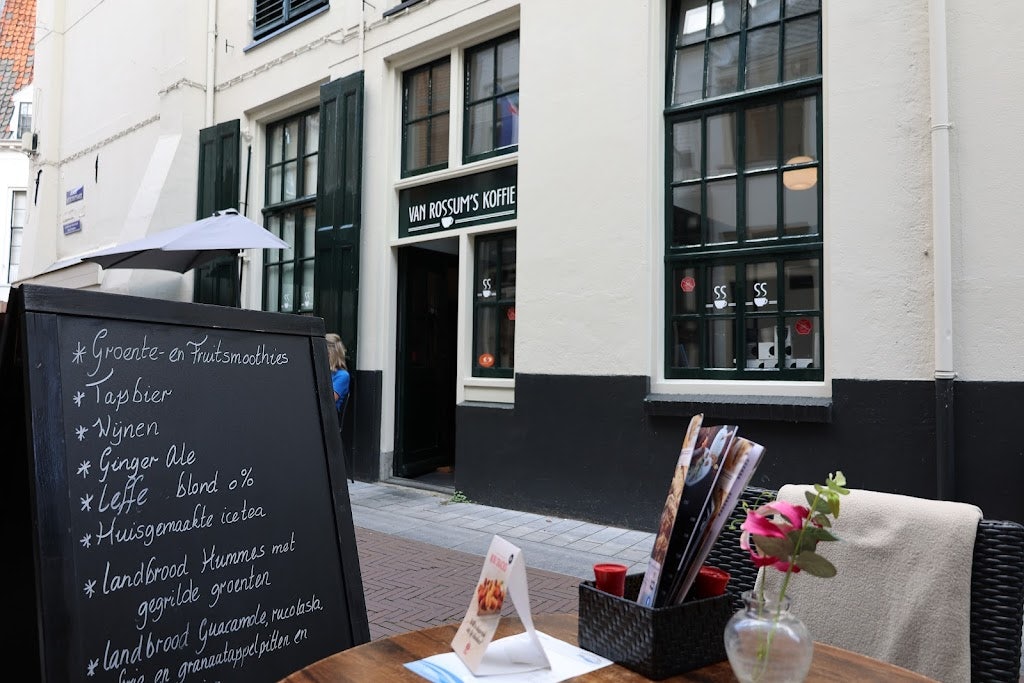 VAN ROSSUM'S KOFFIE
* Groente- en Fruitsmoothies
* Tapbier
* Wijnen
* Ginger Ale
* Leffe blond 0%
* Huisgemaakte icetea
* landbrood Hummes met
gegrilde groenten
* landbrood Guacamole, rucolasla,
en granaatappelpitten en